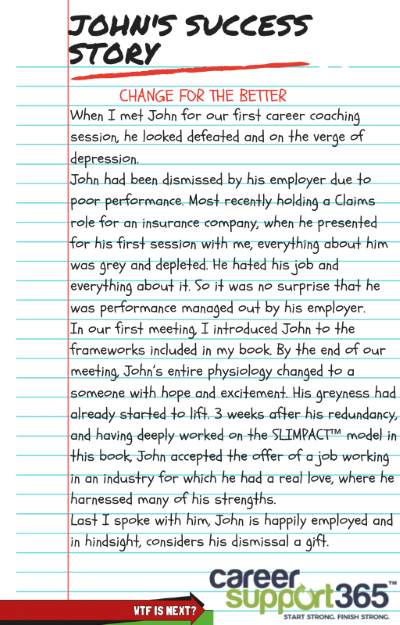 JOHN'S SUCCESS
STORY
CHANGE FOR THE BETTER
When I met John for our first career coaching
session, he looked defeated and on the verge of
depression.
John had been dismissed by his employer due to
poor performance. Most recently holding a Claims
role for an insurance company, when he presented
for his first session with me, everything about him
was grey and depleted. He hated his job and
everything about it. So it was no surprise that he
was performance managed out by his employer.
In our first meeting, I introduced John to the
frameworks included in my book. By the end of our
meeting, John's entire physiology changed to a
someone with hope and excitement. His greyness had
already started to lift. 3 weeks after his redundancy,
and having deeply worked on the SLIMPACT™ model in
this book, John accepted the offer of a job working
in an industry for which he had a real love, where he
harnessed many of his strengths.
Last I spoke with him, John is happily employed and
in hindsight, considers his dismissal a gift.
career
support365™
START STRONG. FINISH STRONG.
WTF IS NEXT?